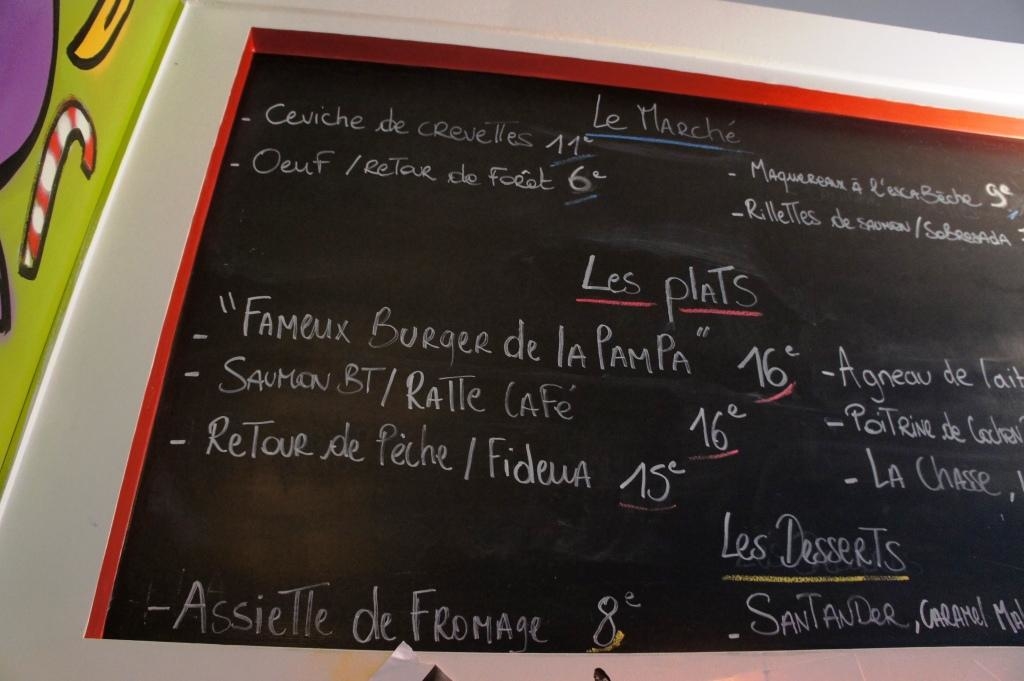 Le Marché
- Ceviche de crevettes 11€
- Oeuf / Retour de Forêt 6€
- Maquereau à l'escabèche 9€
- Rillettes de saumon / Sobrasada
Les plats
- "Fameux Burger de la Pampa" 16€
- Saumon BT / Ratte Café 16€
- Retour de Pêche / Fideua 15€
- Agneau de lait
- Poitrine de Cochon
- La Chasse,
Les Desserts
- Assiette de Fromage 8€
- Santander, Caramel